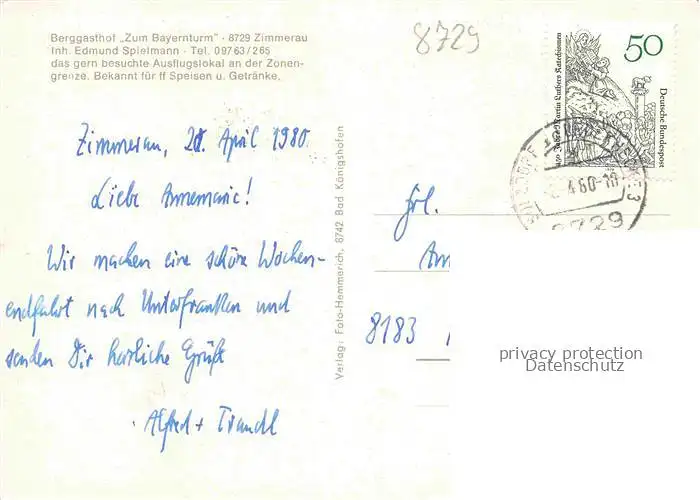 Berggasthof „Zum Bayernturm" · 8729 Zimmerau
Inh. Edmund Spielmann · Tel. 09763/265
das gern besuchte Ausflugslokal an der Zonen-
grenze. Bekannt für ff Speisen u. Getränke.
8729
50
450 Jahre Martin Luthers Katechismus
Deutsche Bundespost
8729
Zimmerau, 20. April 1980.
Liebe Annemarie!
Wir machen eine schöne Wochen-
endfahrt nach Unterfranken und
senden Dir herzliche Grüße
Alfred + Traudl
Verlag: Foto-Hemmerich, 8742 Bad Königshofen
Frl.
An
8183
privacy protection
Datenschutz